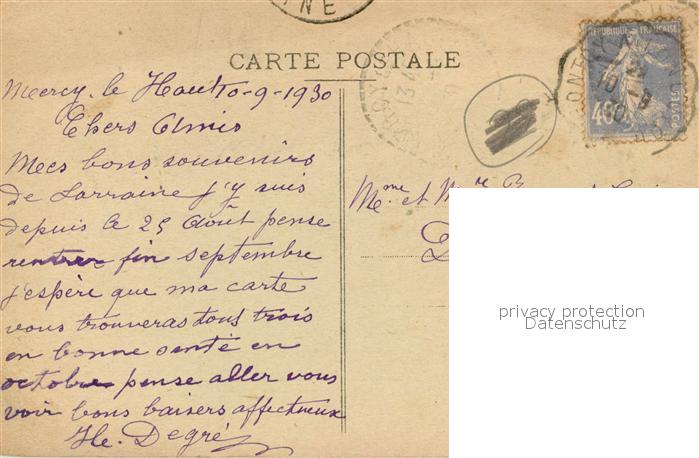 CARTE POSTALE
Mercy le Haut 10-9-1930
Chers Amis
Mes bons souvenirs
de Lorraine j'y suis
depuis le 25 Août pense
rentrer fin septembre
j'espère que ma carte
vous trouveras tous trois
en bonne santé en
octobre pense aller vous
voir bons baisers affectueux
He. Degré
REPUBLIQUE FRANÇAISE
40c
Mme et Mr
privacy protection
Datenschutz